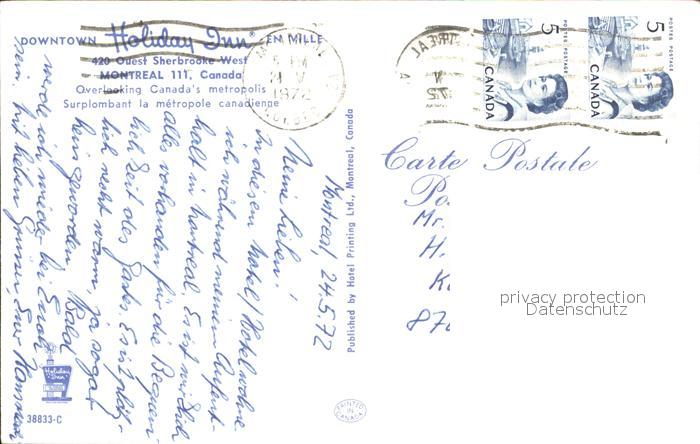 DOWNTOWN Holiday Inn EN VILLE
420 Ouest Sherbrooke West
MONTREAL 111, Canada
Overlooking Canada's metropolis
Surplombant la métropole canadienne
Montreal, 24.5.72
Meine Lieben!
In diesem Hotel wohne
ich während meinem Aufent-
halt in Montreal. Es ist wirklich
alles vorhanden für die Bequem-
lichkeit des Gastes. Es ist plötz-
lich recht warm ja sogar
heiss geworden. Bald
werde ich wieder bei Euch
sein. Mit lieben Grüssen, Euer
38833-C
Holiday Inn
Published by Hotel Printing Ltd., Montreal, Canada
PRINTED IN CANADA
1972
5 POSTES POSTAGE CANADA
5 POSTES POSTAGE CANADA
Carte Postale
Po
Mr.
H.
K
87
privacy protection
Datenschutz